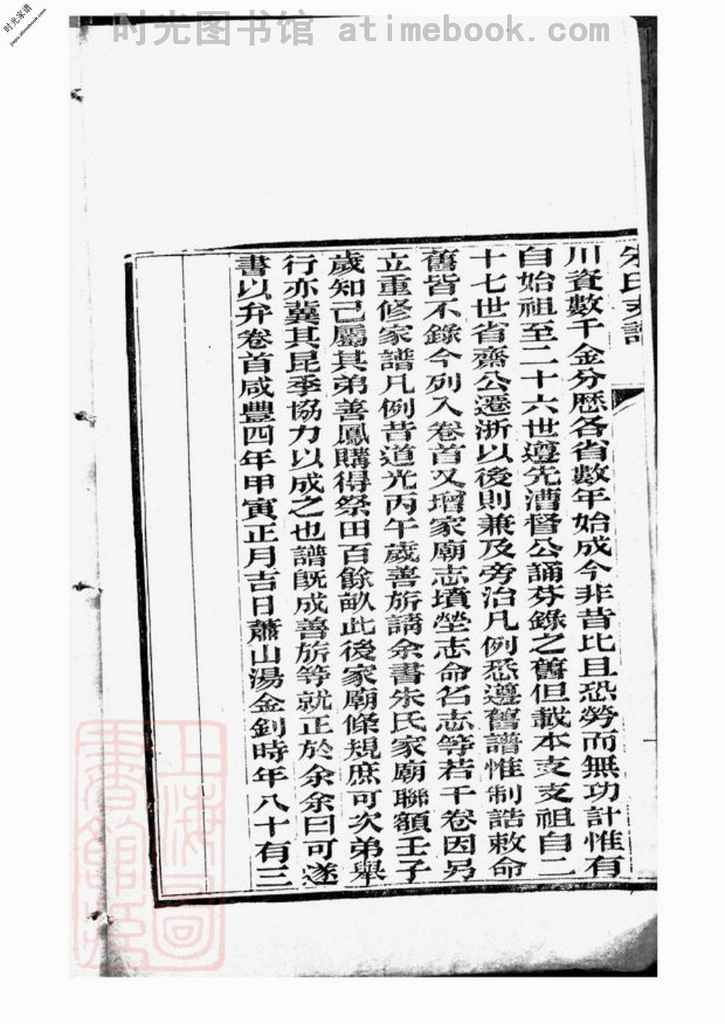 时光图书馆 atimebook.com
时光家谱
朱氏支譜
川資數千金分歷各省數年始成今非昔比且恐勞而無功計惟有
自始祖至二十六世遵先漕督公誦芬錄之舊但載本支支祖自二
十七世省齋公遷浙以後則兼及旁治凡例悉遵舊譜惟制誥敕命
舊皆不錄今列入卷首又增家廟志墳塋志命名志等若干卷因另
立重修家譜凡例昔道光丙午歲善旂請余書朱氏家廟聯額壬子
歲知己屬其弟善鳳購得祭田百餘畝此後家廟條規庶可次弟舉
行亦冀其昆季協力以成之也譜旣成善旂等就正於余余曰可遂
書以弁卷首咸豐四年甲寅正月吉日蕭山湯金釗時年八十有三
上海圖書館藏